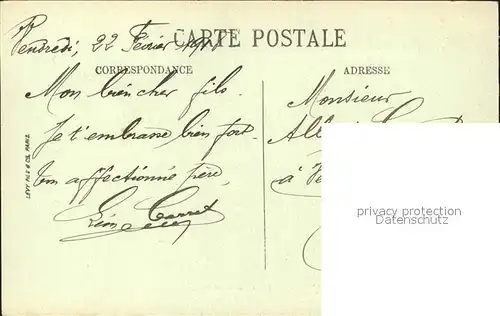 Vendredi, 22 Février
CARTE POSTALE
CORRESPONDANCE
ADRESSE
Mon bien cher fils.
Je t'embrasse bien fort.
Ton affectionné père,
Léon Carret
Monsieur
à
privacy protection
(Datenschutz)
LÉVY FILS & CIE, PARIS